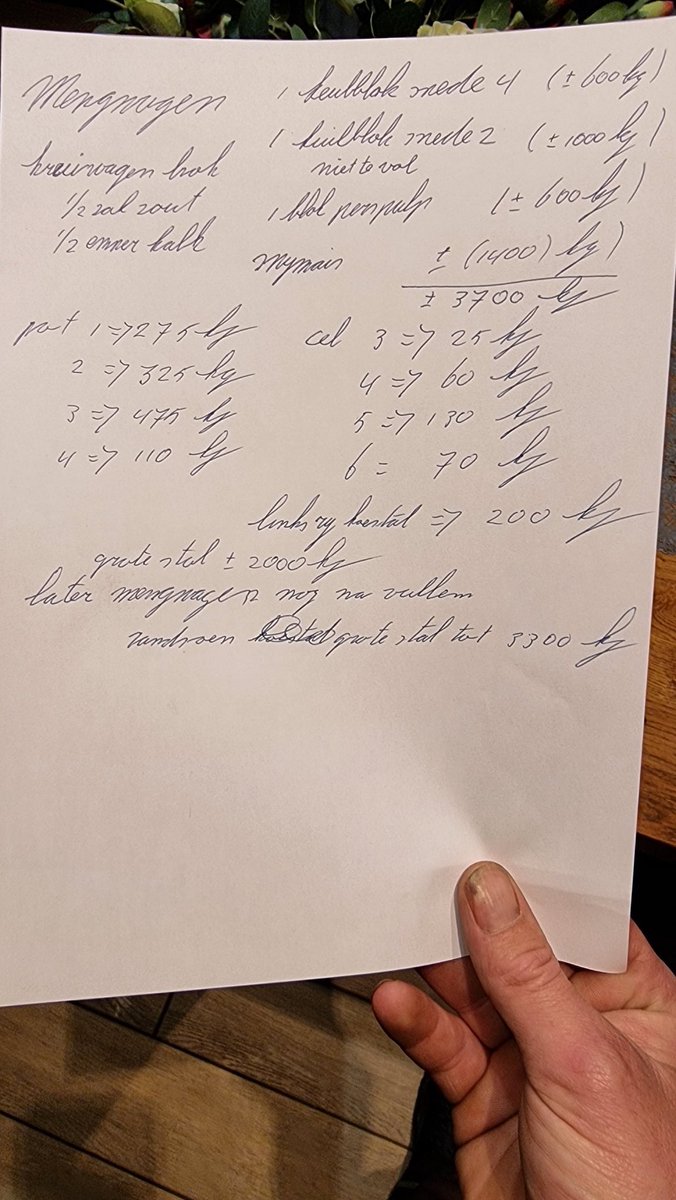 Mengwagen
kruiwagen brok
1/2 zal zout
1/2 emmer kalk
1 kuilblok snede 4 (± 600 kg)
1 kuilblok snede 2 (± 1000 kg)
niet te vol
1 blok perspulp (± 600 kg)
mijmais ± (1400) kg)
± 3700 kg
pot 1 => 275 kg
2 => 325 kg
3 => 475 kg
4 => 110 kg
cel 3 => 25 kg
4 => 60 kg
5 => 130 kg
6 = 70 kg
links rij koestal => 200 kg
grote stal ± 2000 kg
later mengwagen nog na vullem
grote stal tot 3300 kg